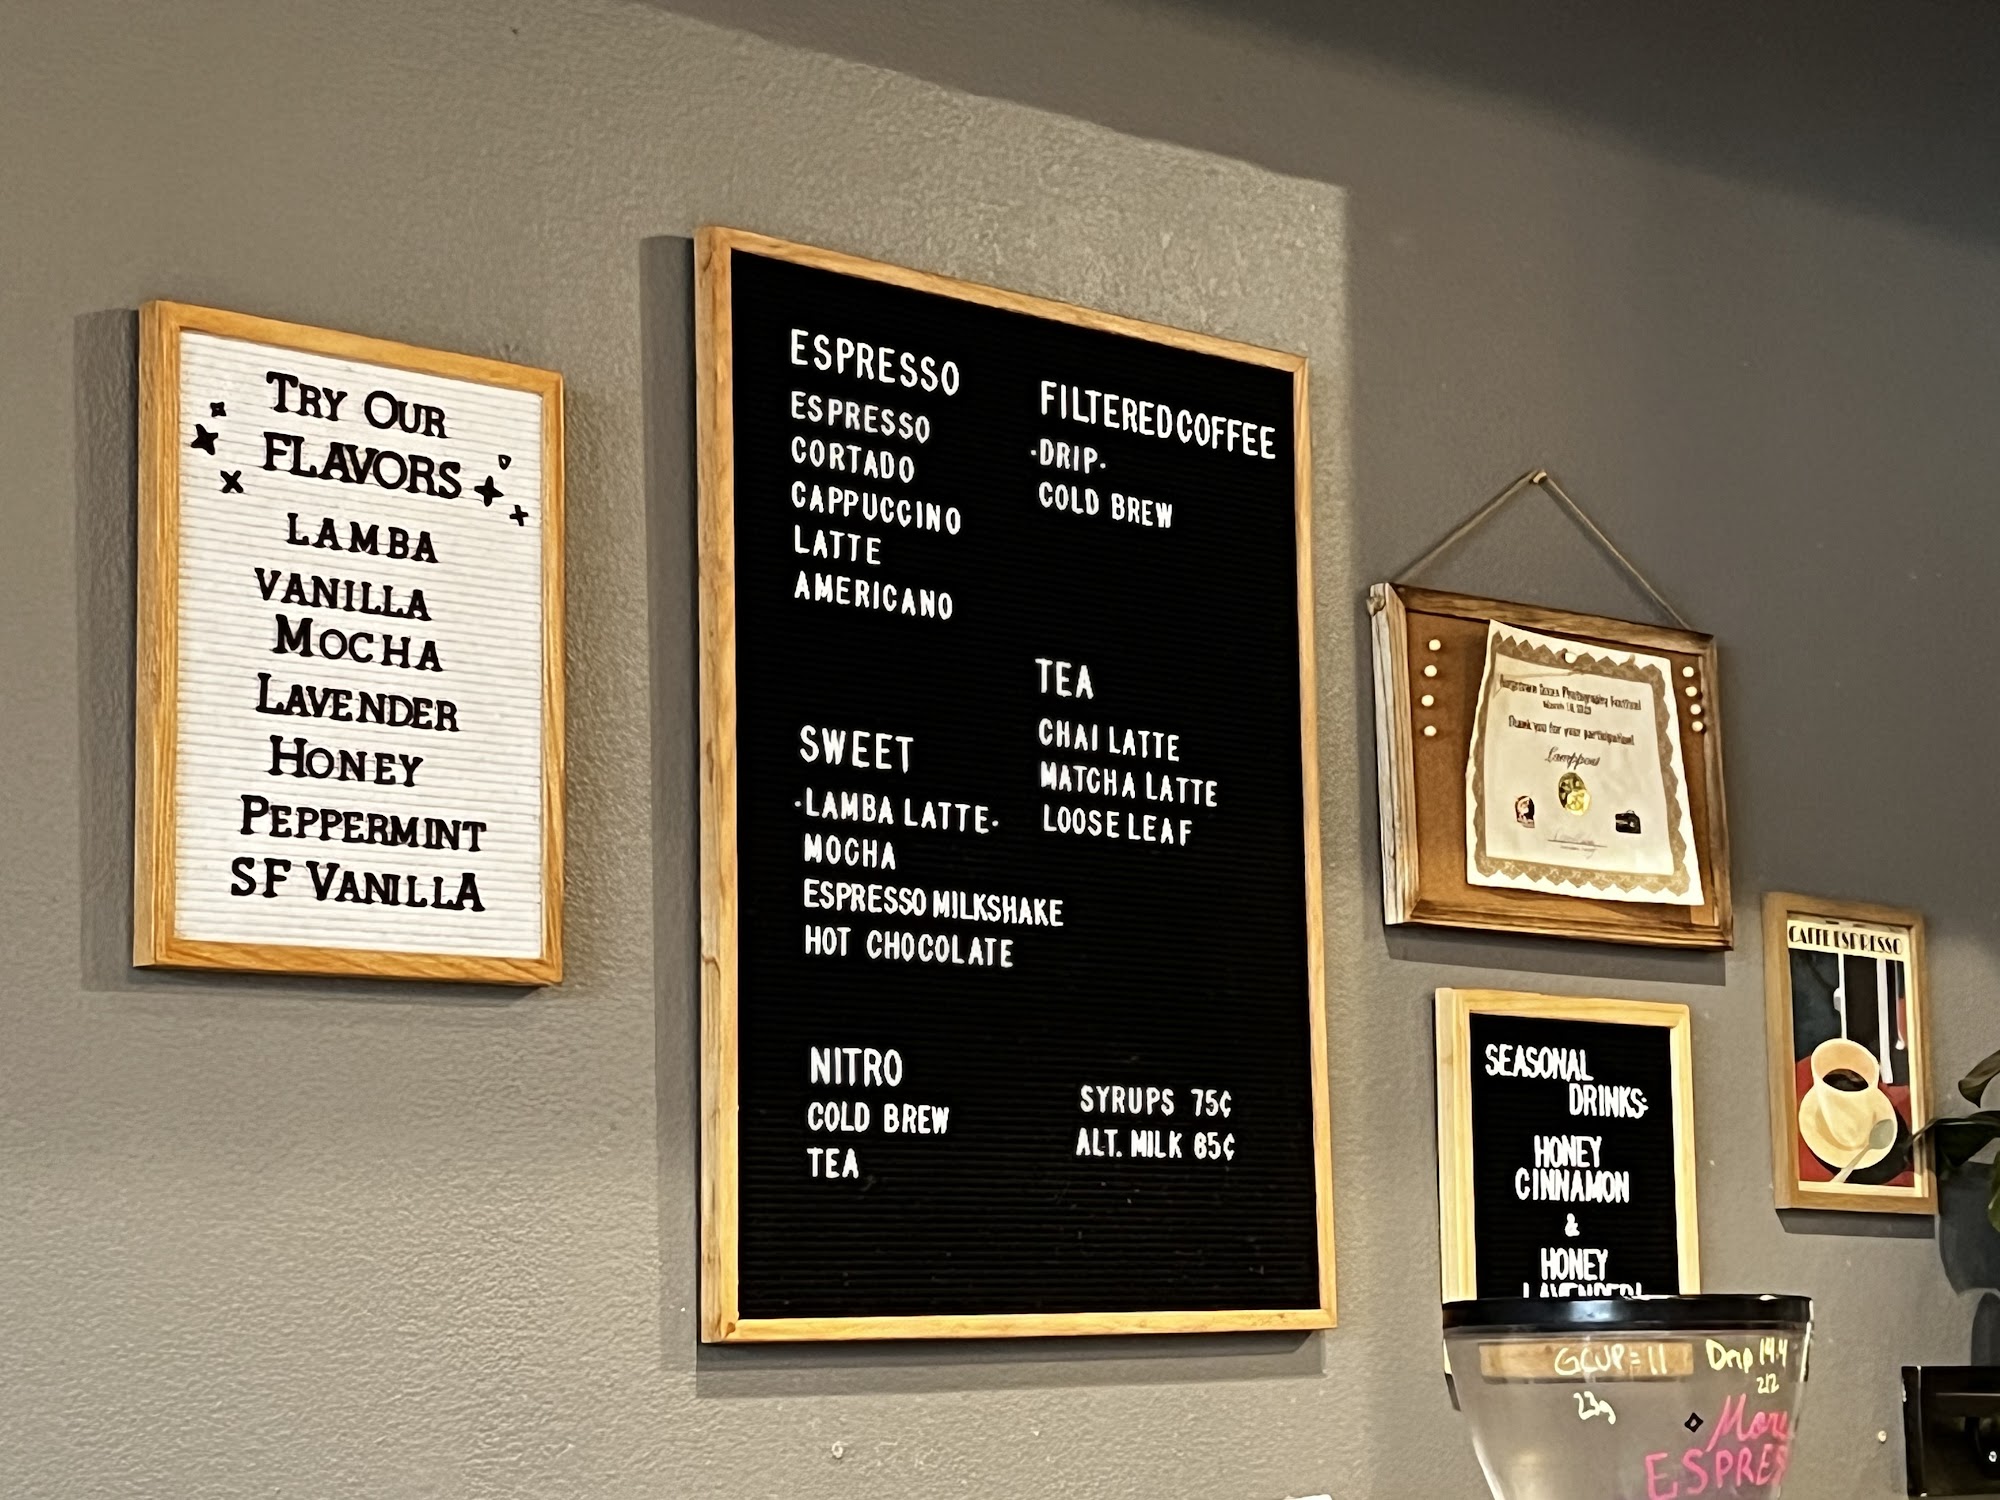 TRY OUR
FLAVORS
LAMBA
VANILLA
MOCHA
LAVENDER
HONEY
PEPPERMINT
SF VANILLA
ESPRESSO
ESPRESSO
CORTADO
CAPPUCCINO
LATTE
AMERICANO
SWEET
·LAMBA LATTE·
MOCHA
ESPRESSO MILKSHAKE
HOT CHOCOLATE
NITRO
COLD BREW
TEA
FILTERED COFFEE
·DRIP·
COLD BREW
TEA
CHAI LATTE
MATCHA LATTE
LOOSE LEAF
SYRUPS 75¢
ALT. MILK 85¢
Photography Festival
Thank you for your participation!
CAFFE ESPRESSO
SEASONAL
DRINKS:
HONEY
CINNAMON
&
HONEY
LAVENDER!
GCUP = 11
23g
Drip 14.4
212
More
ESPRES